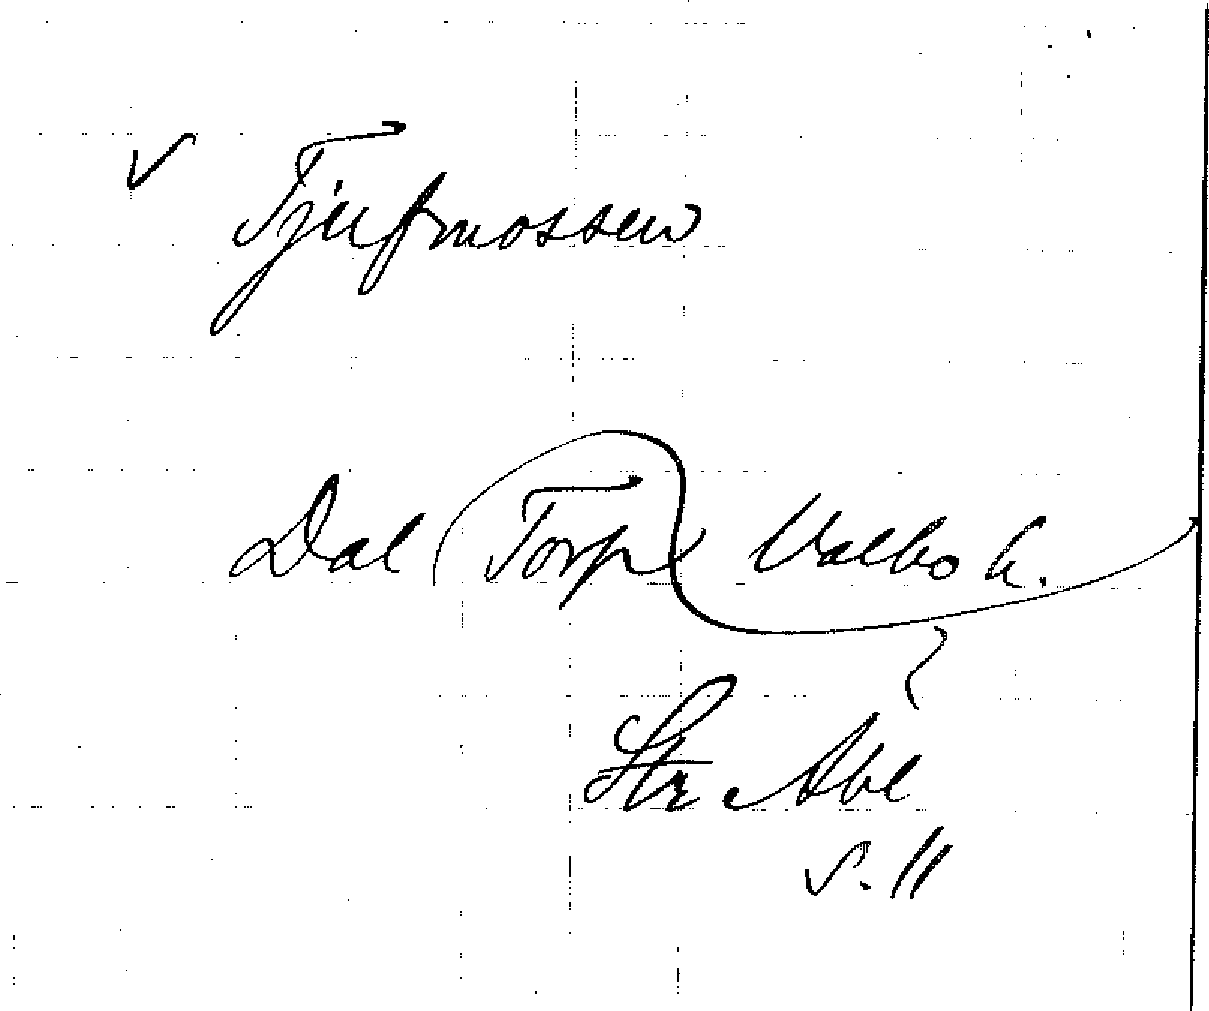 ✓ Tjufmossen
Dal (Torp) Valbo h.
Str Abl
s. 11